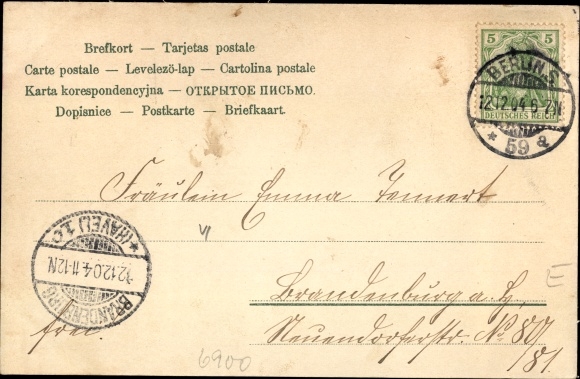 Brefkort — Tarjetas postale
Carte postale — Levelezö-lap — Cartolina postale
Karta korespondencyjna — ОТКРЫТОЕ ПИСЬМО.
Dopisnice — Postkarte — Briefkaart.
5 5
DEUTSCHES REICH
BERLIN S.
12.12.04.6-7N.
* 59 a
Fräulein Emma Tennert
(HAVEL) 1.
12.12.04.11-12N.
BRANDENBURG
Brandenburg a. H.
Neuendorferstr. No. 80/
81.
frei.
E
6900